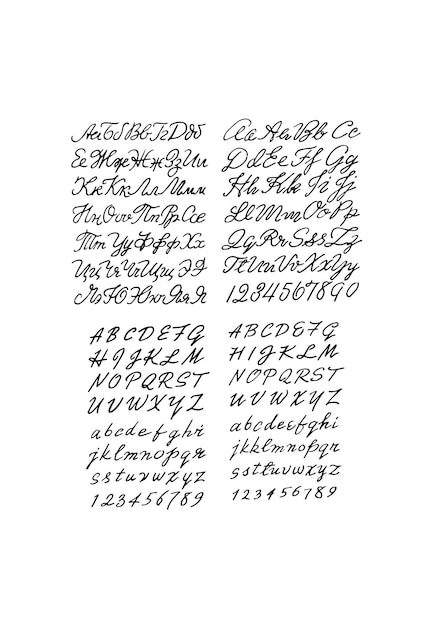 Аа Бб Вв Гг Дд б
Ее Жж Жж Зз Ии
Кк Кк Лл Мм
Нн Оо Пп Рр Сс
Тт Уу Ф ф ф Хх
Цц Чч Чч Щщ Э Я
Ль Ю Юю Яя Я
Aa Aa Bb Cc
Dd Ee Ff Gg
Hh Kk Ii Jj
Ll Mm Oo Pp
Qq Rr Sss Zz
Tt Uu Vv Xx Yy
1234567890
ABCDEFG
HIJKLM
NOPQRST
UVWXYZ
abcdefghi
jklmnopqr
sstuvwxyz
123456789
ABCDEFG
HIJKLM
NOPQRST
UVWXYZ
abcdeefghi
jkklmnopqr
ssttuvwxyz
123456789